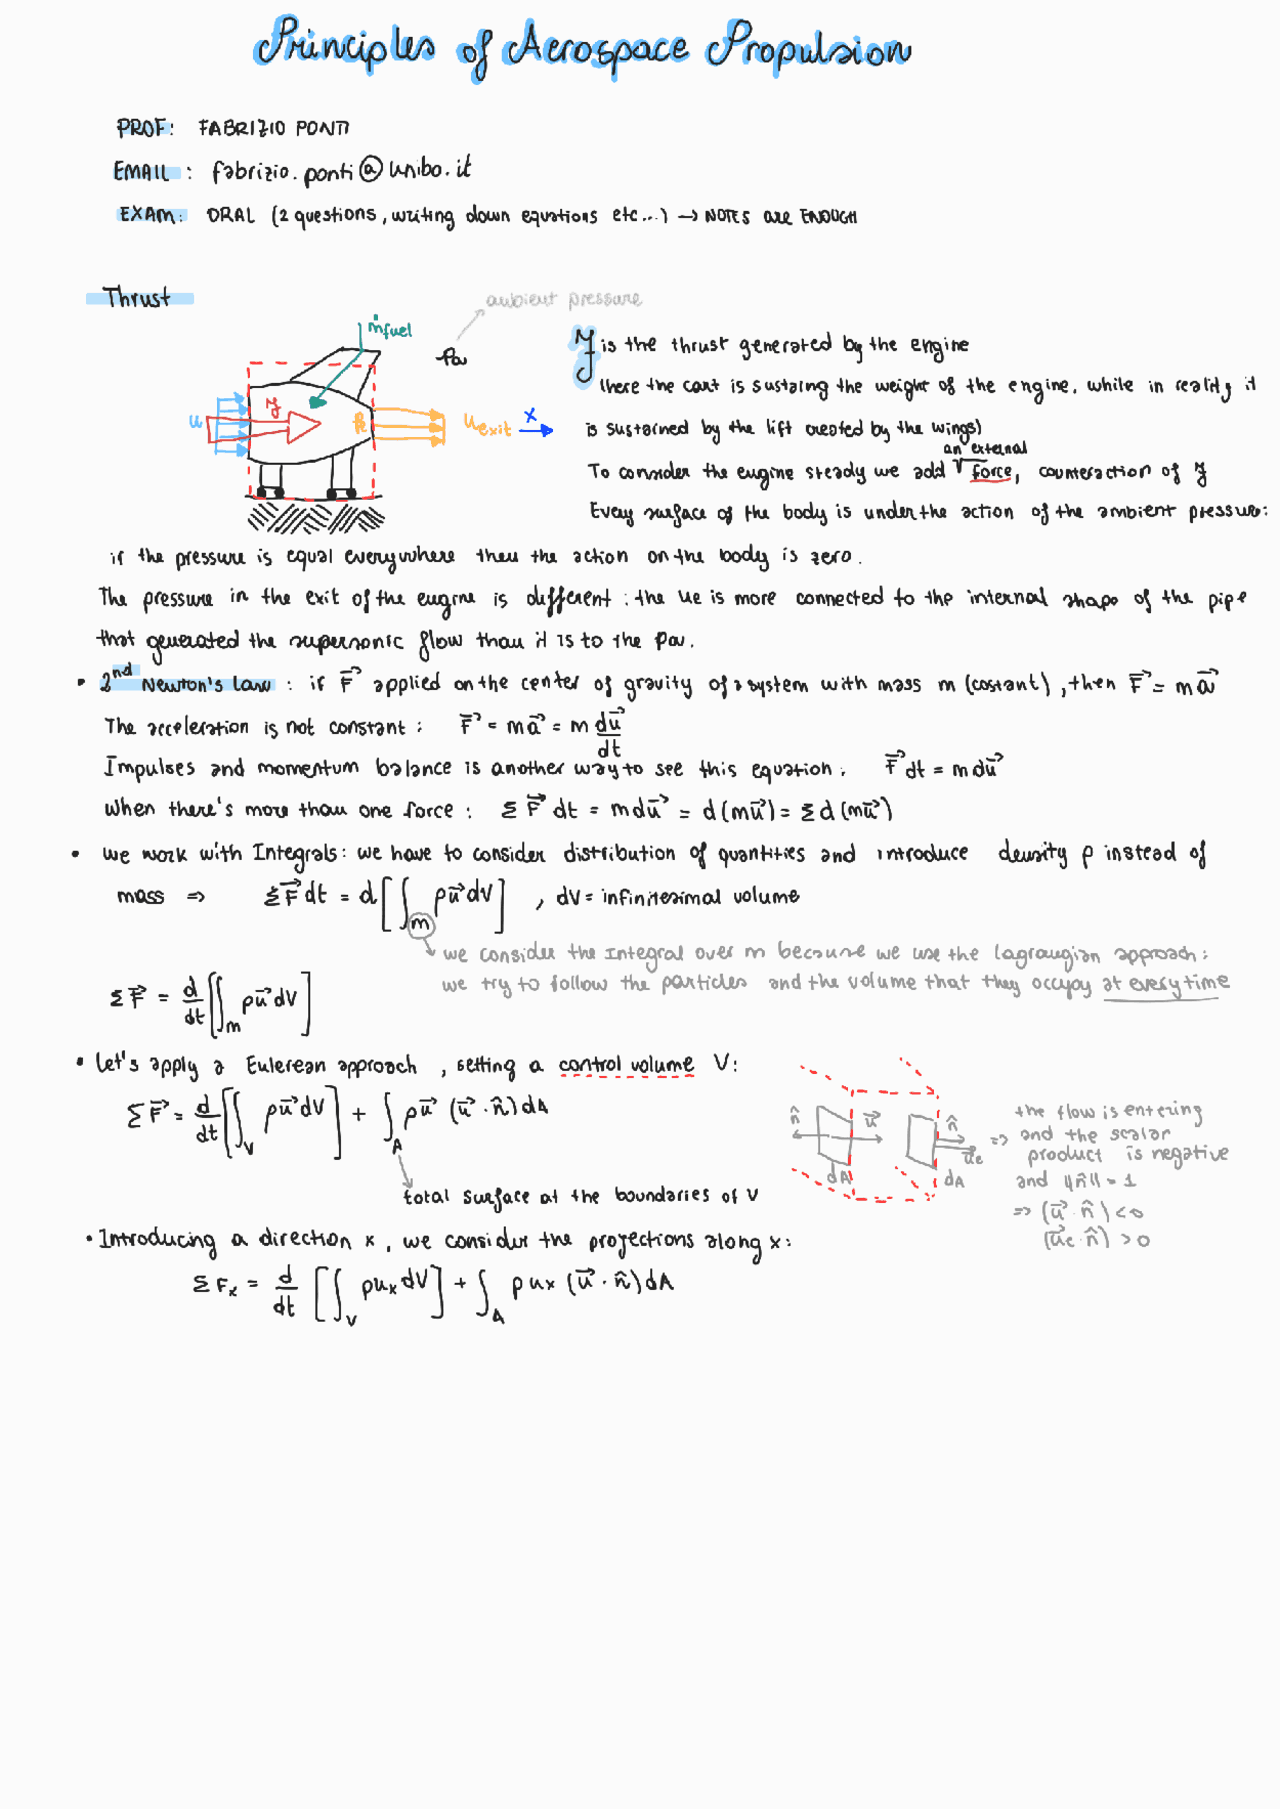 Principles of Aerospace Propulsion
PROF: FABRIZIO PONTI
EMAIL: fabrizio.ponti@unibo.it
EXAM: ORAL (2 questions, writing down equations etc...) → NOTES are ENOUGH
Thrust
ambient pressure
ṁfuel
Pa
u
Pe
u exit
x
𝒯 is the thrust generated by the engine
(here the cart is sustaing the weight of the engine, while in reality it
is sustained by the lift created by the wings)
an external
To consider the engine steady we add force, counteraction of 𝒯
Every surface of the body is under the action of the ambient pressure:
if the pressure is equal everywhere then the action on the body is zero.
The pressure in the exit of the engine is different: the ue is more connected to the internal shape of the pipe
that generated the supersonic flow than it is to the Pa.
• 2nd Newton's law: if F⃗ applied on the center of gravity of a system with mass m (costant), then F⃗ = ma⃗
The acceleration is not constant: F⃗ = ma⃗ = m du⃗/dt
Impulses and momentum balance is another way to see this equation: F⃗dt = mdu⃗
When there's more than one force: ΣF⃗ dt = mdu⃗ = d(mu⃗) = Σd(mu⃗)
• we work with Integrals: we have to consider distribution of quantities and introduce density ρ instead of
mass ⇒ ΣF⃗dt = d[∫m ρu⃗dV], dV = infinitesimal volume
we consider the Integral over m because we use the lagrangian approach:
we try to follow the particles and the volume that they occupy at every time
ΣF⃗ = d/dt [∫m ρu⃗dV]
• Let's apply a Eulerean approach, setting a control volume V:
ΣF⃗ = d/dt [∫V ρu⃗dV] + ∫A ρu⃗ (u⃗·n̂)dA
total surface at the boundaries of V
n̂ u⃗ dA
n̂ u⃗e dA
⇒ the flow is entering
and the scalar
product is negative
and ||n̂|| = 1
⇒ (u⃗·n̂) < 0
(u⃗e·n̂) > 0
• Introducing a direction x, we consider the projections along x:
ΣFx = d/dt [∫V ρuxdV] + ∫A ρux (u⃗·n̂)dA